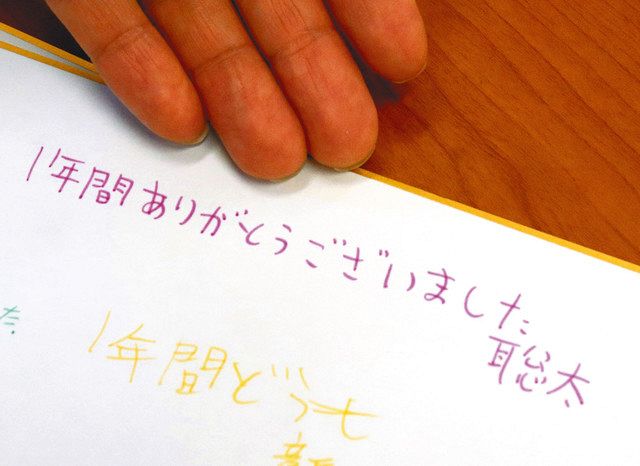 1年間ありがとうございました
聡太
1年間どうも